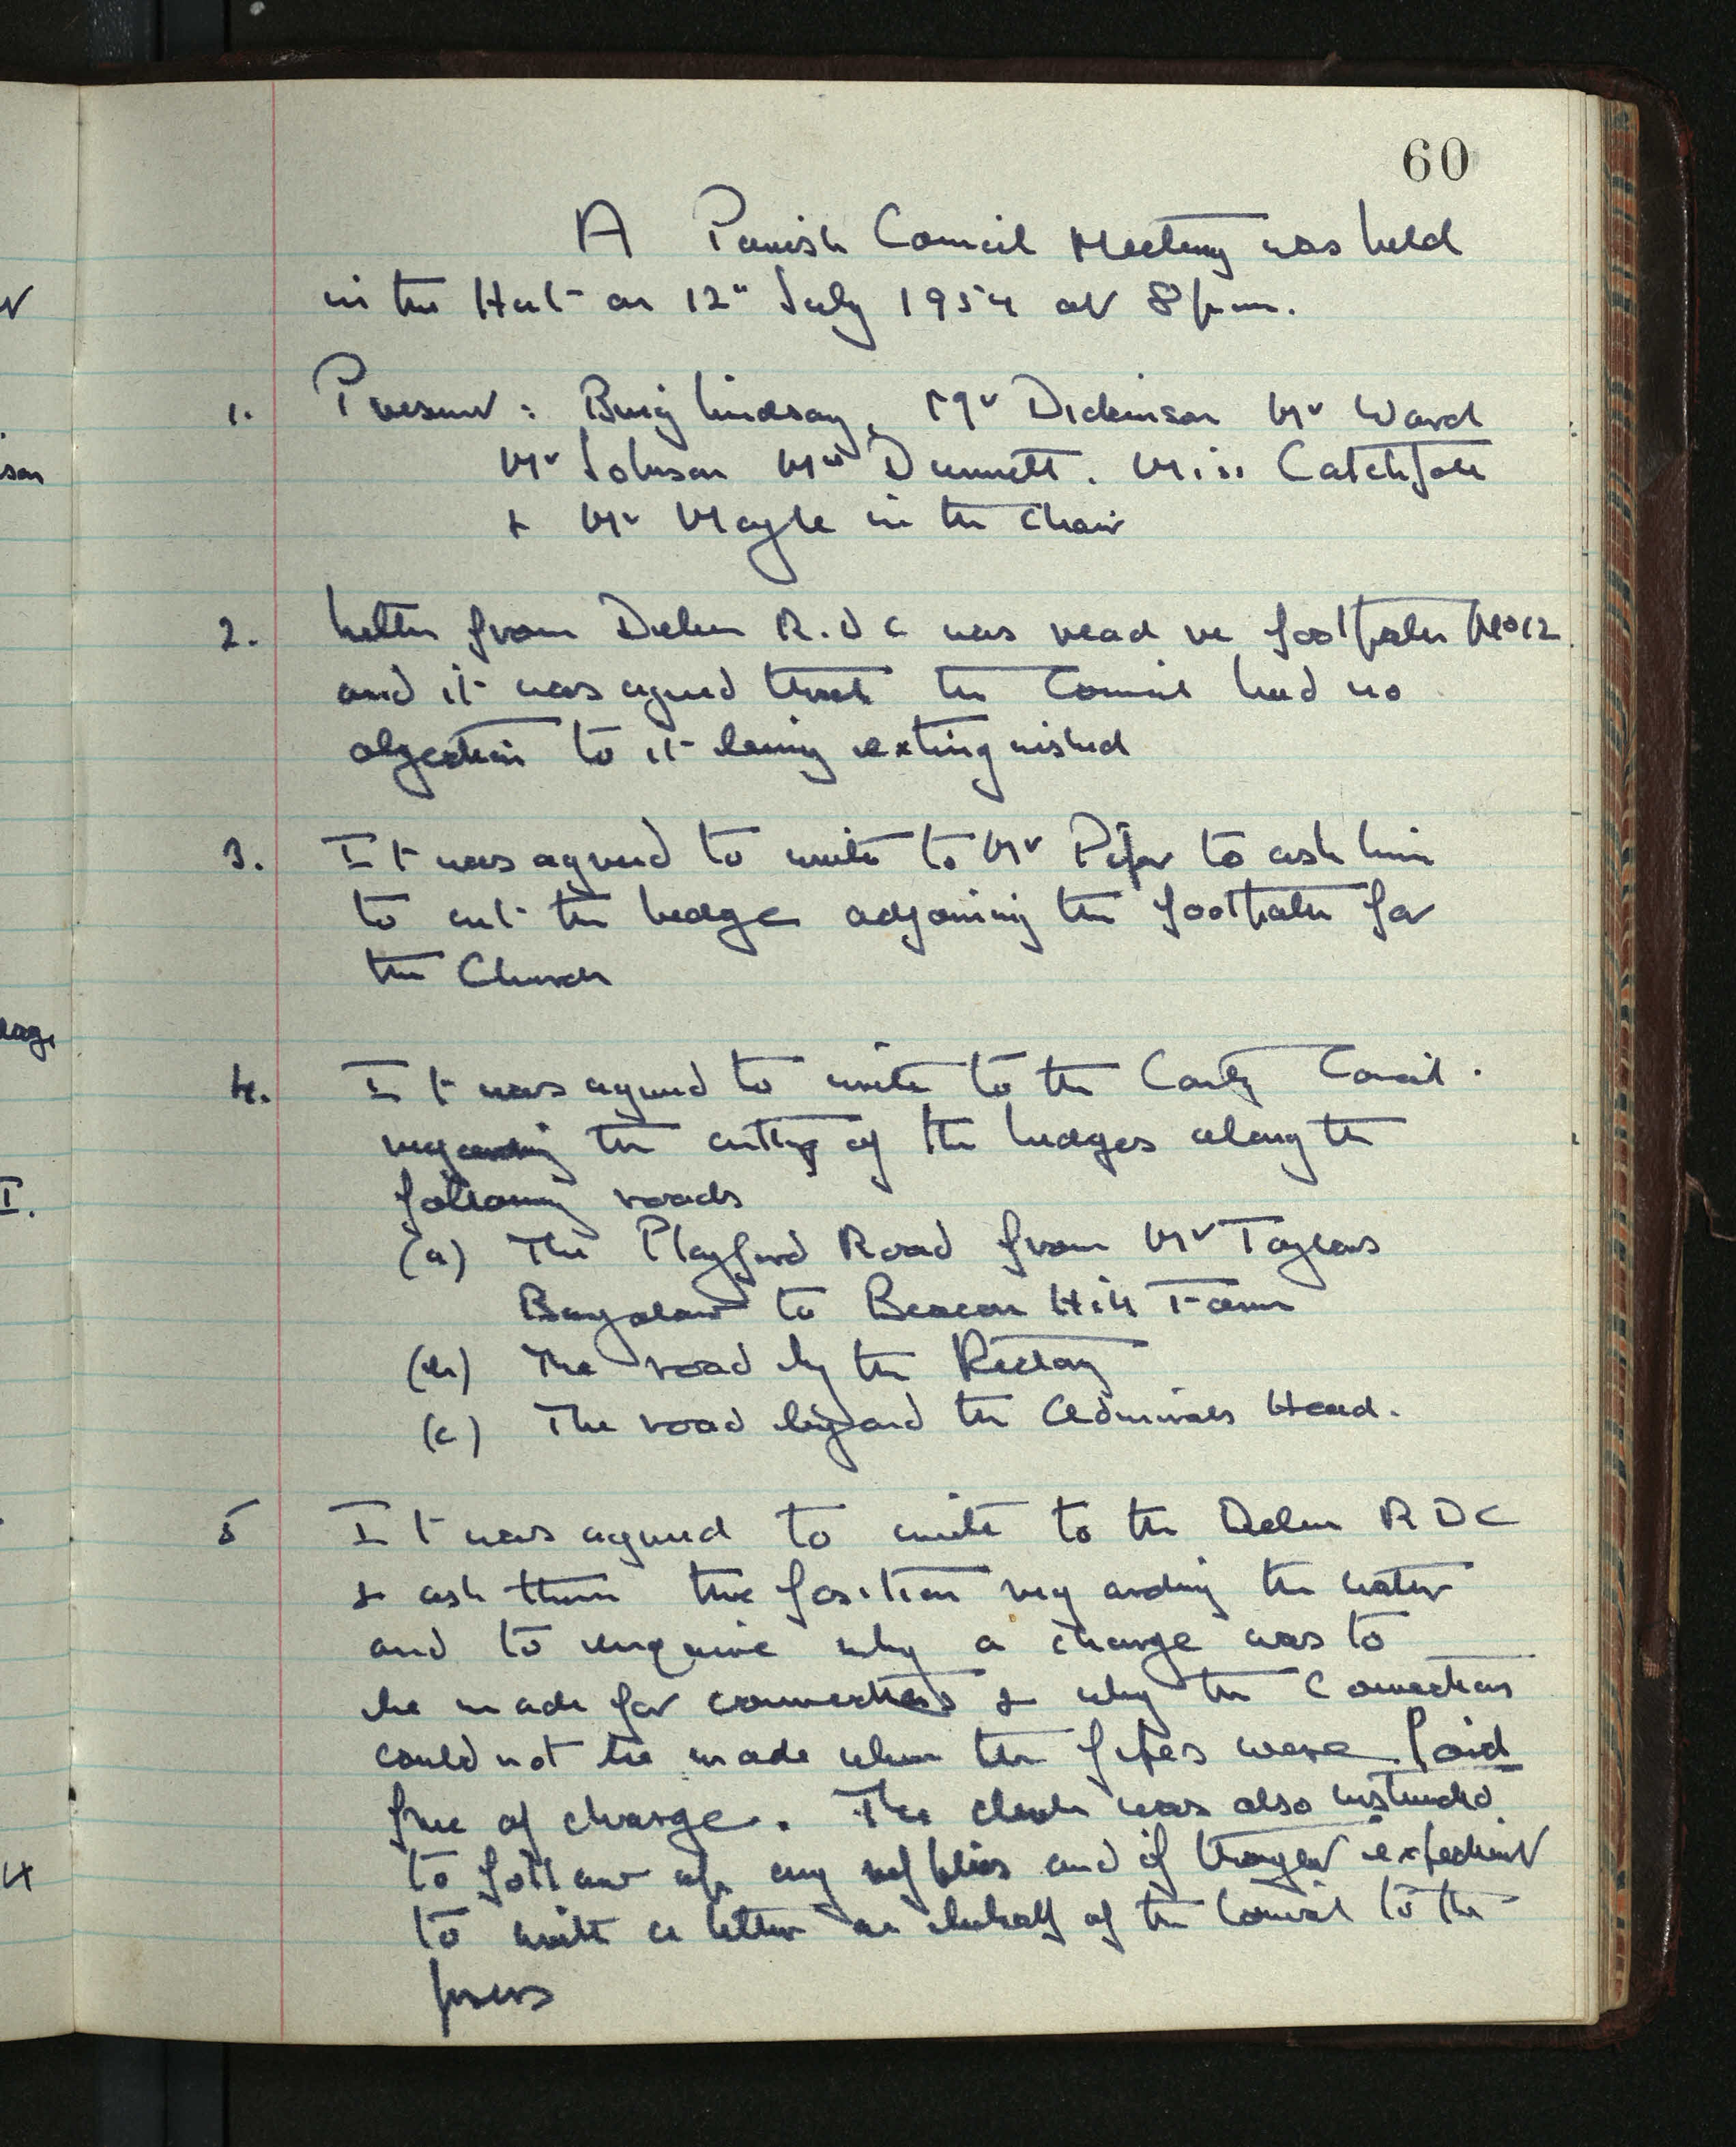 60
A Parish Council Meeting was held
in the Hut on 12" July 1954 at 8 pm.
1. Present: Brig Lindsay, Mr Dickinson Mr Ward
Mr Johnson Mrs Dunnett. Miss Catchpole
+ Mr Mayle in the Chair
2. Letter from Deben R.D C was read re footpath No 12
and it was agreed that the Council had no
objection to it being extinguished
3. It was agreed to write to Mr Piper to ask him
to cut the hedge adjoining the footpath for
the Church
4. It was agreed to write to the County Council.
regarding the cutting of the hedges along the
following roads
(a) The Playford Road from Mr Taylors
Bungalow to Beacon Hill Farm
(b) The road by the Rectory
(c) The road beyond the Admirals Head.
5 It was agreed to write to the Deben R D C
& ask them the position regarding the water
and to enquire why a charge was to
be made for connections & why the Connections
could not be made when the pipes were laid
free of charge. The clerk was also instructed
to follow up any replies and if thought expedient
to write a letter on behalf of the Council to the
press
son
I.
4